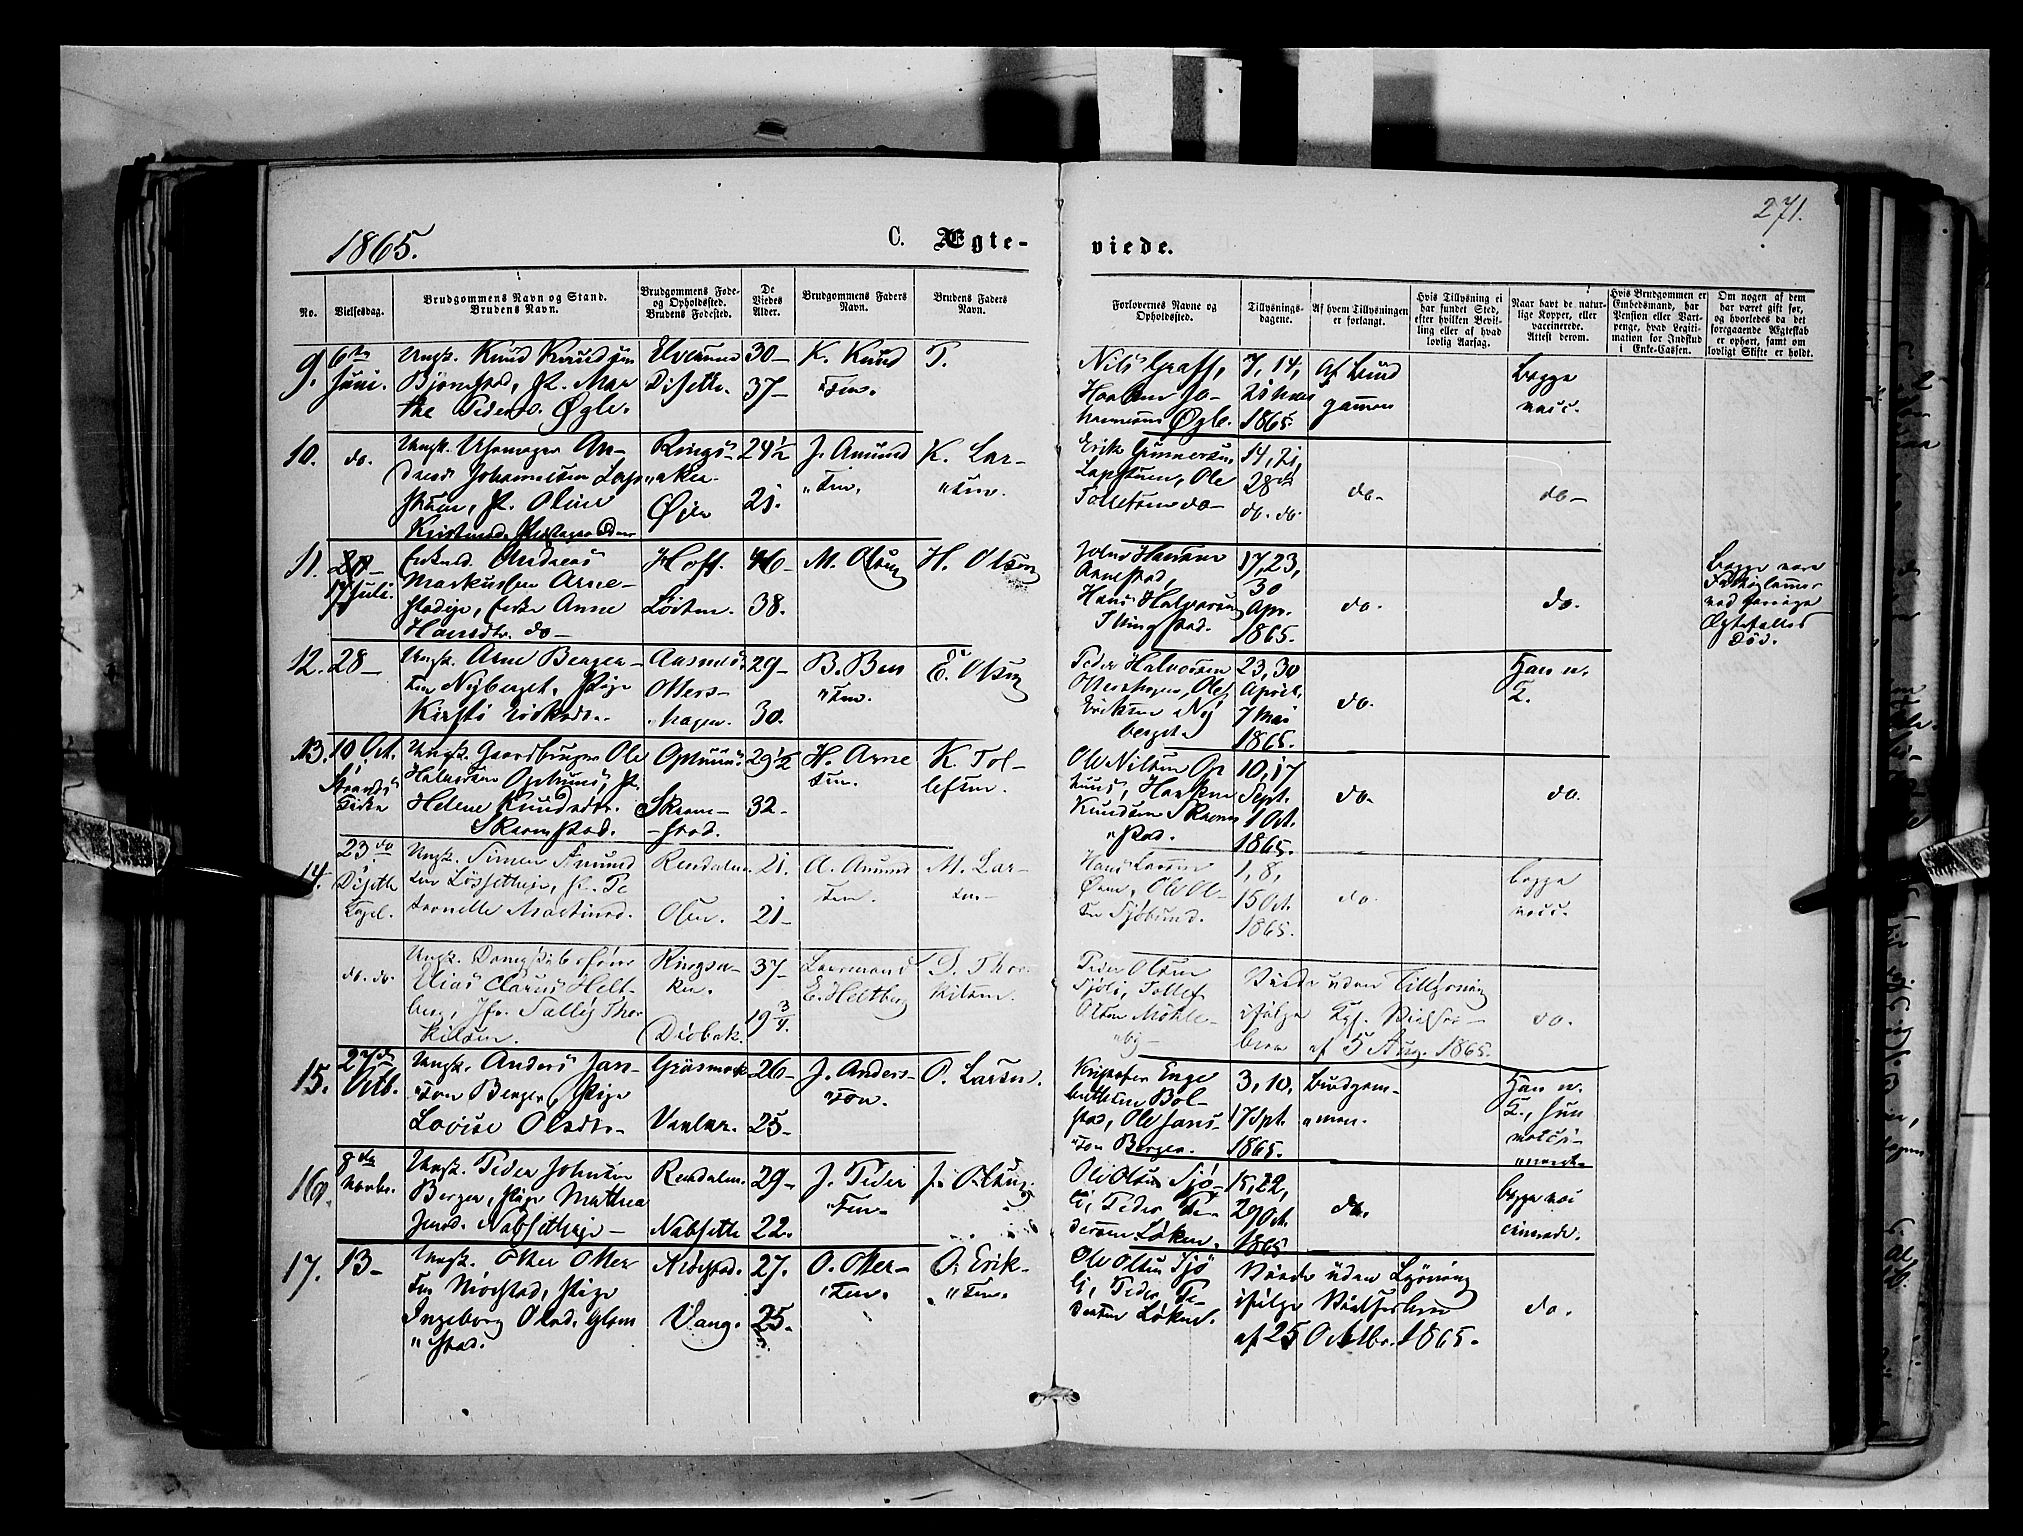 271.
1865.
C. Ægte-
viede.
No.
Vielsesdag.
Brudgommens Navn og Stand.
Brudens Navn.
Brudgommens Føde-
og Opholdssted.
Brudens Fødested.
De
Viedes
Alder.
Brudgommens Faders
Navn.
Brudens Faders
Navn.
Forlovernes Navne og
Opholdssted.
Tillysnings-
dagene.
Af hvem Tillysningen
er forlangt.
Hvis Tillysning ei
har fundet Sted,
efter hvilken Bevil-
ling eller af hvad
lovlig Aarsag.
Naar havt de natur-
lige Kopper, eller
vaccinerede.
Attest derom.
Hvis Brudgommen er
Embedsmand, har
Pension eller Vart-
penge, hvad Legiti-
mation for Indskud
i Enke-Cassen.
Om nogen af dem
har været gift før,
og hvorledes da det
foregaaende Ægteskab
er ophørt, samt om
lovligt Skifte er holdt.
9.
6te
Juni.
Ungk. Knud Knudsen
Bjørnstad, P. Mar
the Pedersd. Øgle.
Elverum
Disette.
30-
37-
K. Knud
sen.
P.
Nils Graff,
Haaken Jo-
hannesen Øgle.
7, 14,
21 Mai
1865.
Af Brud
gommen
Begge
vacc.
10.
do.
Ungk. An-
dreas Johannesen Lap-
stuen, P. Oline
Rings-
"aker
Øjer
24½
21.
J. Amund
"sen.
K. Lar-
"sen.
Erik Gunnersen
Lapstuen, Ole
Tollefsen do-
14, 21,
28de
do. do.
do-
do-
11.
17 Juli.
Enkmd. Andreas
Markussen Arne-
stadeje, Enke Anne
Hansdtr. do-
Hoff.
Løiten.
46-
38.
M. Olsen
H. Olsen
Johan Hansen
Arnestad,
Hans Halvorsen
Thingstad.
17, 23,
30
Apr.
1865.
do.
do.
Begge vare
ved forrige
Ægtefælles
Død.
12.
28-
Ungk. Arne Berger-
sen Nyberget, Pige
Kirsti
Aasmos
Otters-
hagen.
29-
30.
B. Ben
"sen.
E. Olsen
Peder Halvorsen
Ottershagen, Ole
Eriksen Ny
berget.
23, 30
April,
7 Mai
1865.
do.
Han n.
K.
13.
10 Oct.
i
Ungk. Gaardbruger Ole
Halvorsen Ophuus, P.
Helene Knudsdtr.
Skramstad.
Ophuus
Skram-
-stad.
29½
32-
H. Arne
sen.
K. Tol-
lefsen.
Ole Nilsen Op
huus, Haaken
Knudsen Skram
"stad.
10, 17
Sept.
1 Oct.
1865.
do.
do.
14.
23 do
i
Disette
Capel.
Ungk. Simen Amund
sen Løssetteje, P. Pe
tronelle Martinsd.
Rendalen
Osen.
21.
21-
A. Amund
sen.
M. Lar-
sen.
Hans Larsen
Øren, Ole Ol-
sen Sjøbund.
1, 8,
15 Oct.
1865.
do.
begge
vacc.
do. do.
Ungk.
Elias Clarus Helt-
berg, Jfr. Tallej Thor
kilsen.
Ringsa-
ker.
Drøbak.
37-
19¾.
E. Heltberg
D. Thor
kilsen.
Peder Olsen
Sjøli, Tollef
Olsen Møkle-
by-
Viede uden Tillysning
ifølge Kgl. Vielses-
brev af 5 Aug. 1865.
do.
15.
27de
Octb.
Ungk. Anders Jan-
son Berger, Pige
Lovise Olsdtr.
Grasmark
Vinlar.
26-
25-
J. Anders-
son.
O. Larsen.
Kristofer Enge
brettsen Bol-
stad, Ole Jans-
"son Berger.
3, 10,
17 Spt.
1865.
Brudgom-
"men.
Han n.
K., hun
vacci-
"neret
16.
8de
Novbr.
Ungk. Peder Johnsen
Berger, Pige Mathea
Jensd. Nabsetteje-
Rendalen.
Nabsette
29-
22.
J. Peder
"sen-
J. Olsen
Ole Olsen Sjø-
li, Peder Pe-
dersen Løken.
15, 22,
29 Oct.
1865
do.
begge vac
cinerede.
17.
13-
Ungk. Otter Otter
sen Nørstad, Pige
Ingeborg Olsd. Glom
"stad.
Nørstad.
Vang.
27.
25.
O. Otter-
"sen.
O. Erik-
"sen.
Ole Olsen Sjø
li, Peder Pe-
dersen Løken.
Viede uden Lysning
ifølge Vielsesbrev
af 25 Octbr. 1865.
do.